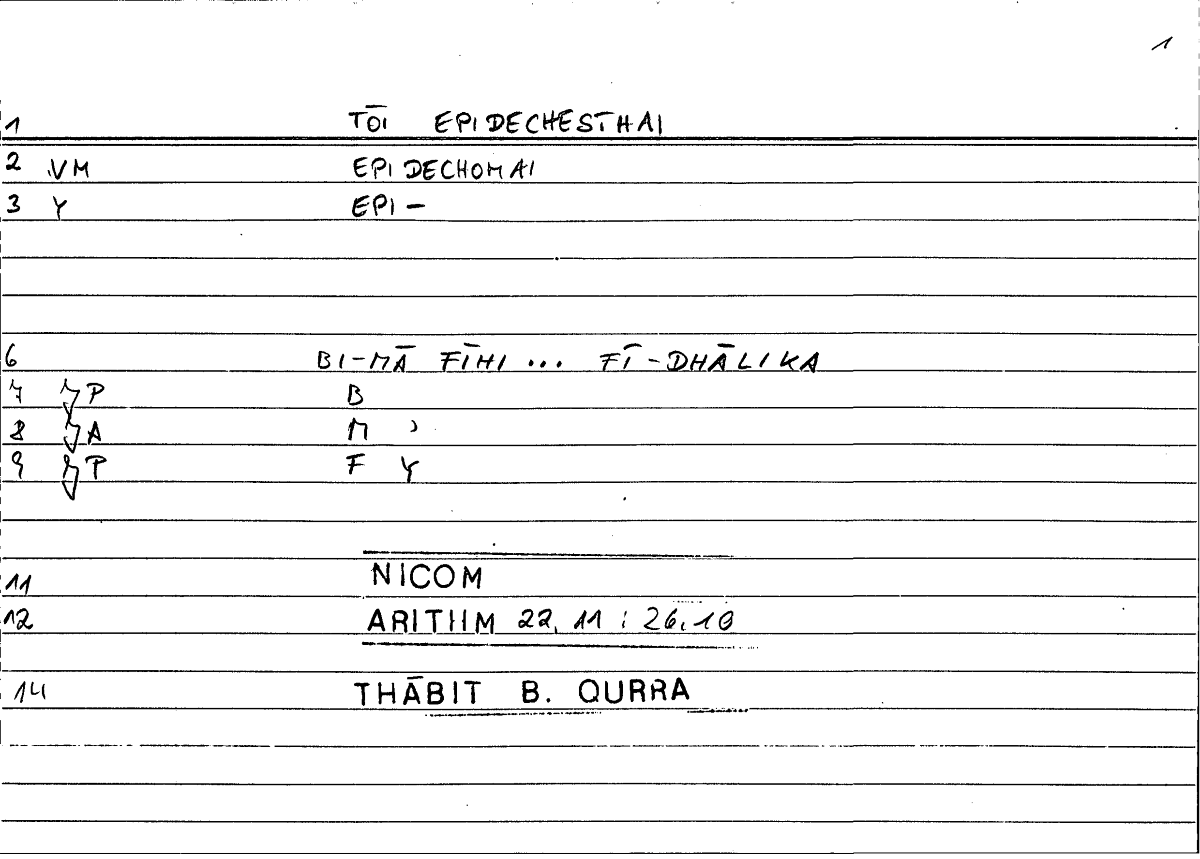 1
1 TŌI EPIDECHESTHAI
2 VM EPIDECHOMAI
3 Y EPI-
6 BI-MĀ FĪHI ... FĪ-DHĀLIKA
7 P B
8 A M ʾ
9 P F Y
11 NICOM
12 ARITHM 22, 11 : 26,10
14 THĀBIT B. QURRA